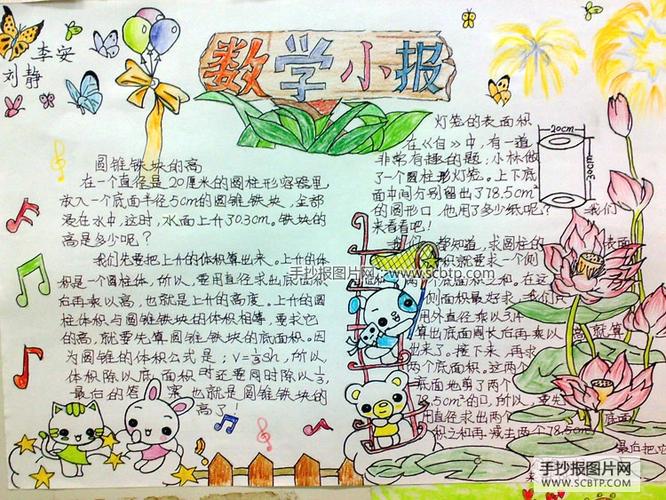 李安
刘静
数学小报
圆锥铁块的高
在一个直径是20厘米的圆柱形容器里
放入一个底面半径5cm的圆锥铁块，全部
浸在水中，这时，水面上升了0.3cm。铁块的
高是多少呢？
我们先要把上升的体积算出来。上升的体
积是一个圆柱体，所以，要用直径求出底面积
后再乘以高，也就是上升的高度。上升的圆
柱体积与圆锥铁块的体积相等，要求它
的高，就要先算圆锥铁块的底面积。因
为圆锥的体积公式是：V=⅓sh，所以，
体积除以底面积时还要同时除以⅓，
最后的答案也就是圆锥铁块的
高了！
灯笼的表面积
在《自》中，有一道
非常有趣的题：小林做
了一个圆柱形灯笼。上下底
面中间分别留出了78.5cm²
的圆形口，他用了多少纸呢？我们
来看看吧！
20cm
30cm
我们 学知道，求圆柱的 表面
积就要求一个侧
两个底面积之和。在这
侧面积最好求，我们只
用外直径乘以3.
算出底面周长后再乘以 就算
出来了。接下来，再求
两个底面积。这两个
底面地剪了两个
8.5cm²的口，所以，要先
用直径求出两个 底面
积之和再 减去两个78.5cm²
最后把它
手抄报图片网：www.scbtp.com
手抄报图片网
WWW.SCBTP.COM